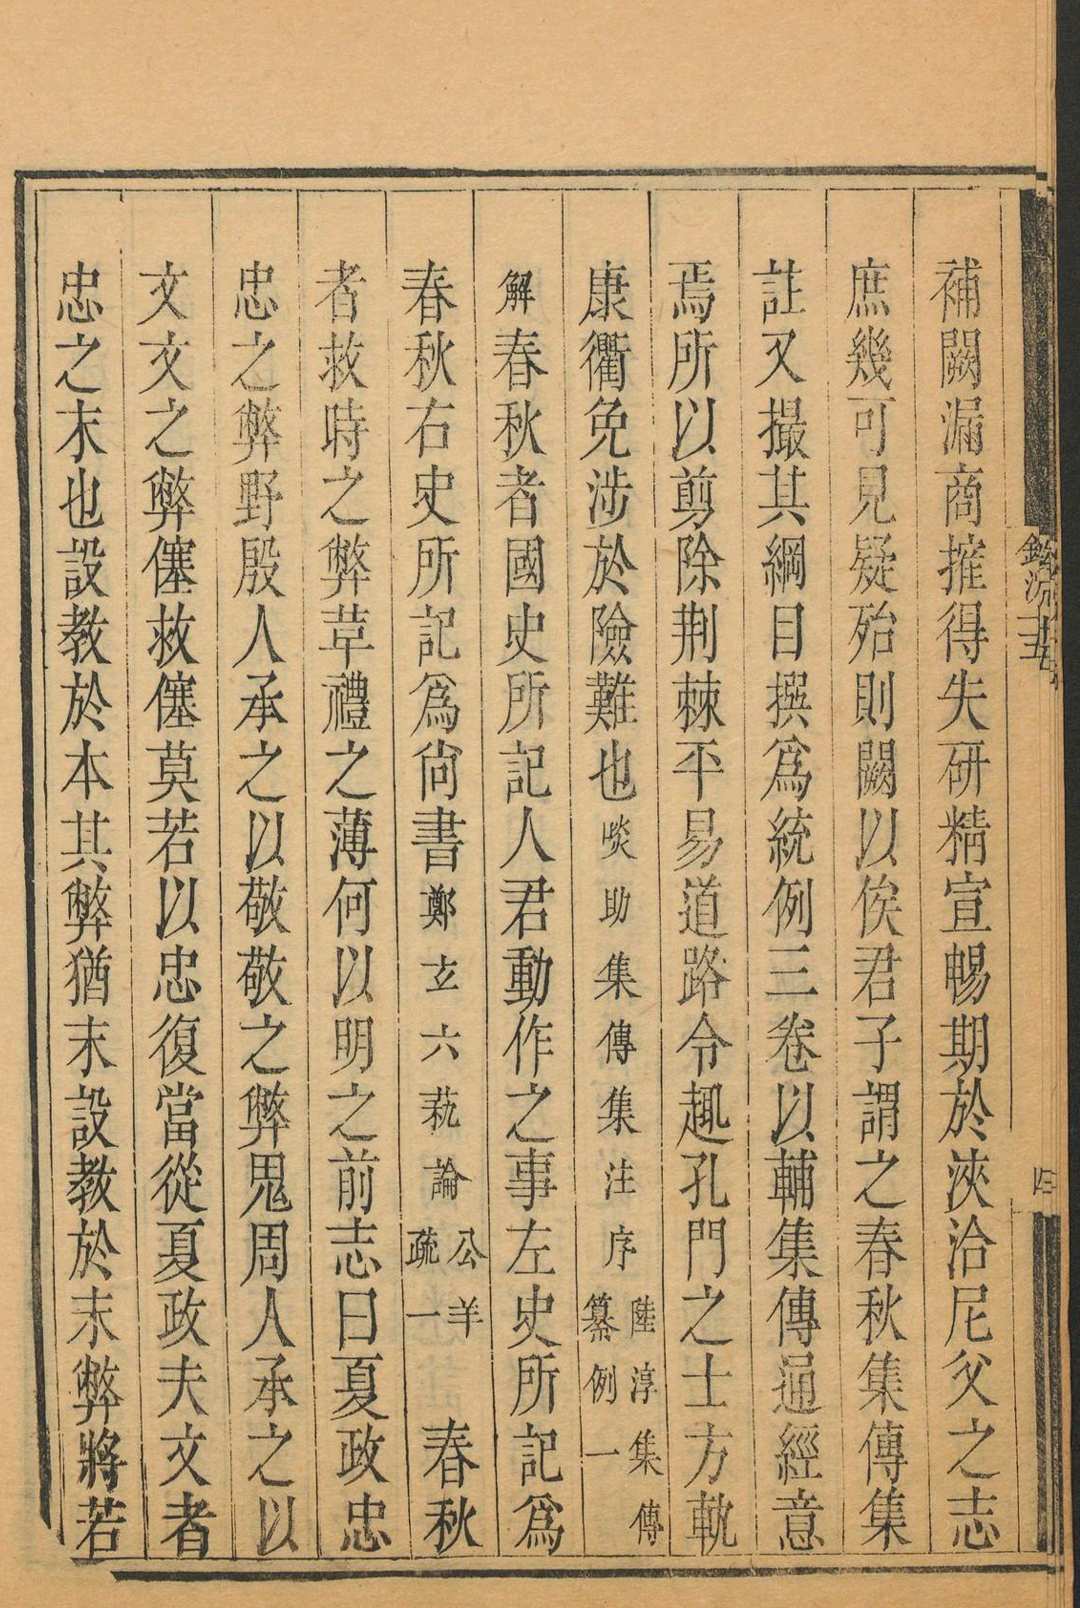 補闕漏商搉得失研精宣暢期於浹洽尼父之志
庶幾可見疑殆則闕以俟君子謂之春秋集傳集
註又撮其綱目撰爲統例三卷以輔集傳通經意
焉所以剪除荆棘平易道路令趣孔門之士方軌
康衢免涉於險難也啖助集傳集注序陸淳集傳纂例一
解春秋者國史所記人君動作之事左史所記爲
春秋右史所記爲尙書鄭玄六藝論公羊疏一 春秋
者救時之弊革禮之薄何以明之前志曰夏政忠
忠之弊野殷人承之以敬敬之弊鬼周人承之以
文文之弊僿救僿莫若以忠復當從夏政夫文者
忠之末也設教於本其弊猶末設教於末弊將若
四